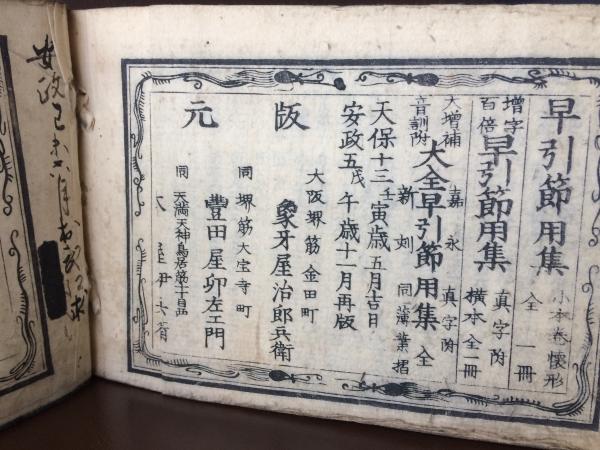 早引節用集
小本巻懐形
全一冊
増字
百倍
早引節用集
真字附
横本全一冊
大増補
音訓附
大全早引節用集 全
嘉永
新刻
真字附
同薄葉摺
天保十三壬寅歳五月吉日
安政五戊午歳十一月再版
版元
大阪堺筋金田町
象牙屋治郎兵衛
同堺筋大宝寺町
豐田屋卯左エ門
同天満天神鳥居筋
安政己未